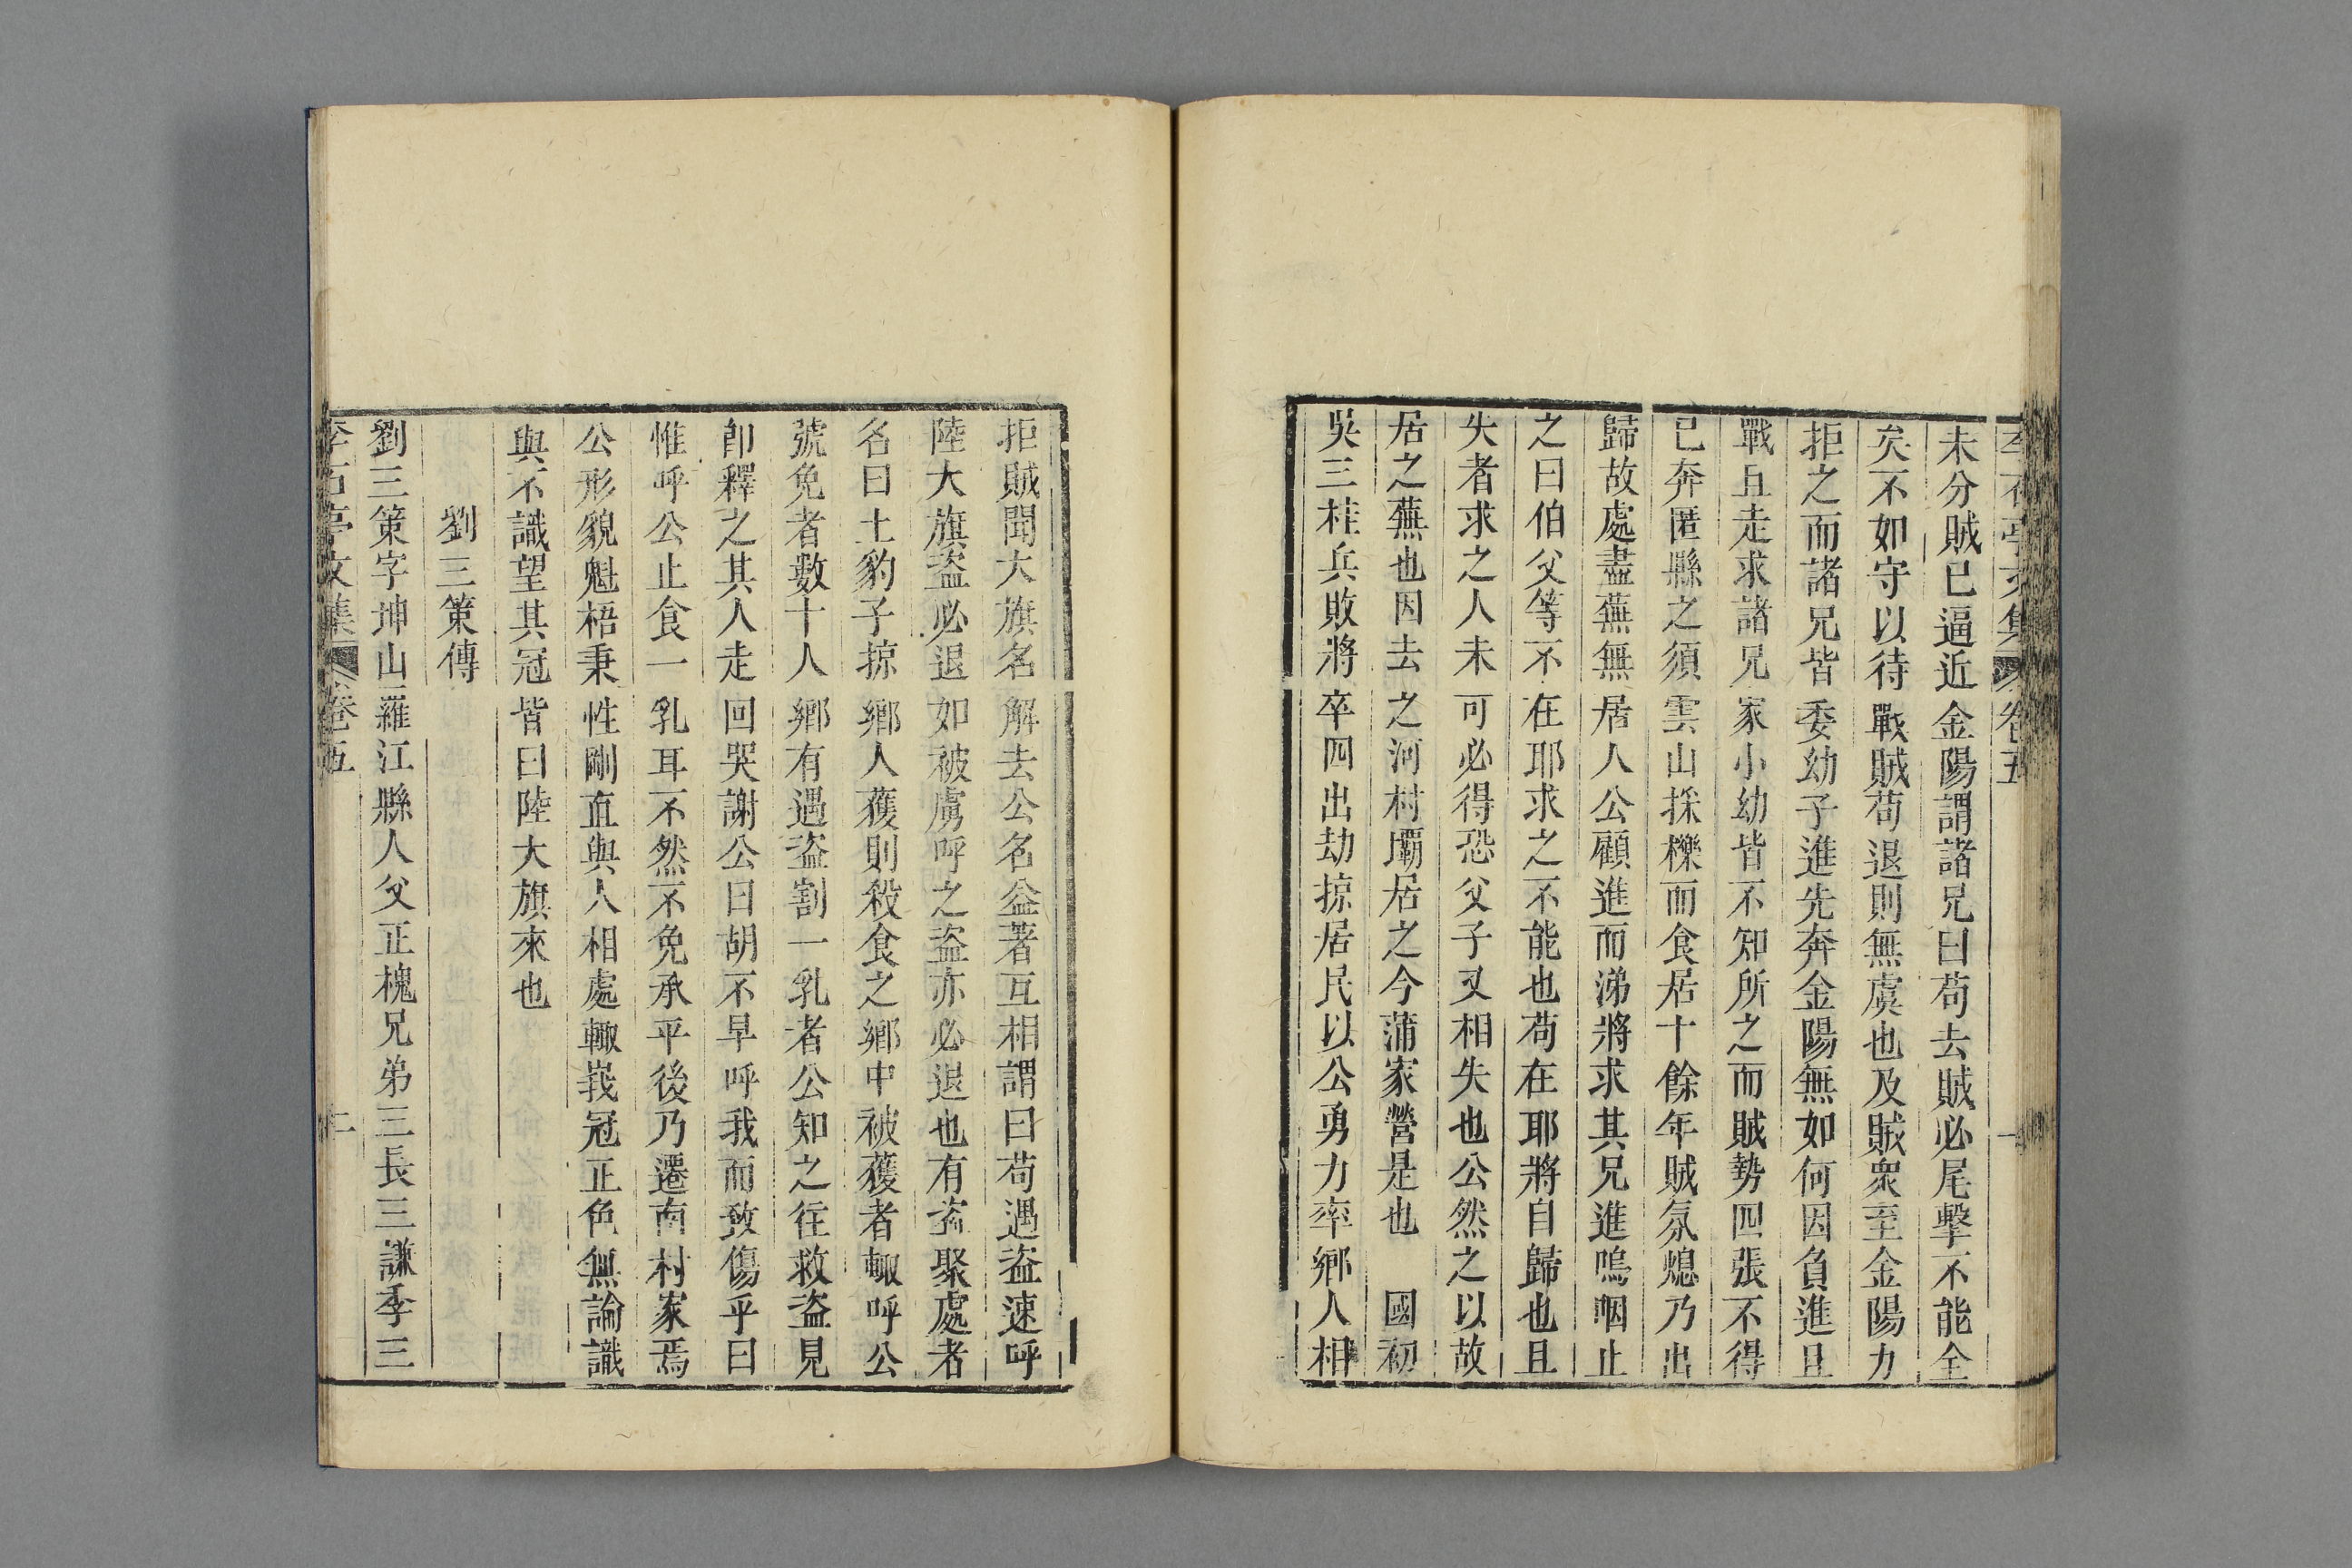 李石亭文集 卷五
未分賊已逼近金陽謂諸兄曰苟去賊必尾擊不能全
矣不如守以待戰賊苟退則無虞也及賊衆至金陽力
拒之而諸兄皆委幼子進先奔金陽無如何因負進且
戰且走求諸兄家小幼皆不知所之而賊勢四張不得
已奔匿縣之須雲山採櫟而食居十餘年賊氛熄乃出
歸故處盡蕪無居人公顧進而涕將求其兄進嗚咽止
之曰伯父等不在耶求之不能也苟在耶將自歸也且
失者求之人未可必得恐父子又相失也公然之以故
居之蕪也因去之河村壩居之今蒲家營是也 國初
吳三桂兵敗將卒四出劫掠居民以公勇力率鄉人相
拒賊聞大旗名解去公名益著互相謂曰苟遇盗速呼
陸大旗盗必退如被虜呼之盗亦必退也有盗聚處者
名曰土豹子掠鄉人獲則殺食之鄉中被獲者輙呼公
號免者數十人鄉有遇盗割一乳者公知之往救盗見
卽釋之其人走回哭謝公曰胡不早呼我而致傷乎曰
惟呼公止食一乳耳不然不免承平後乃遷南村家焉
公形貌魁梧秉性剛直與人相處輙峩冠正色無論識
與不識望其冠皆曰陸大旗來也
劉三策傳
劉三策字坤山羅江縣人父正槐兄弟三長三謙季三
李石亭文集 卷五 十一